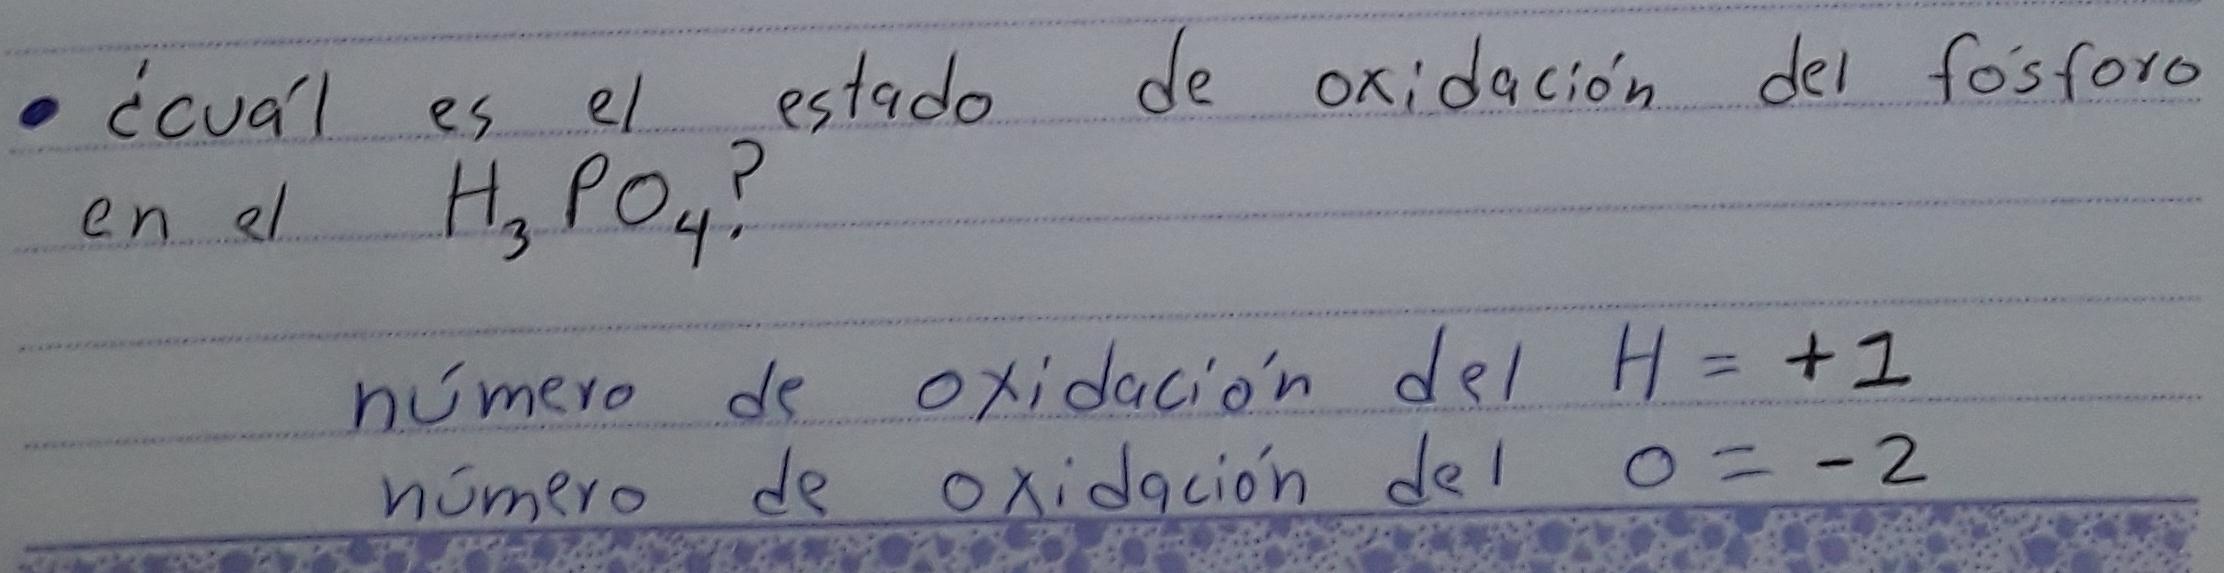 • ¿cuál es el estado de oxidación del fósforo
en el H₃PO₄?
número de oxidación del H = +1
número de oxidación del O = -2